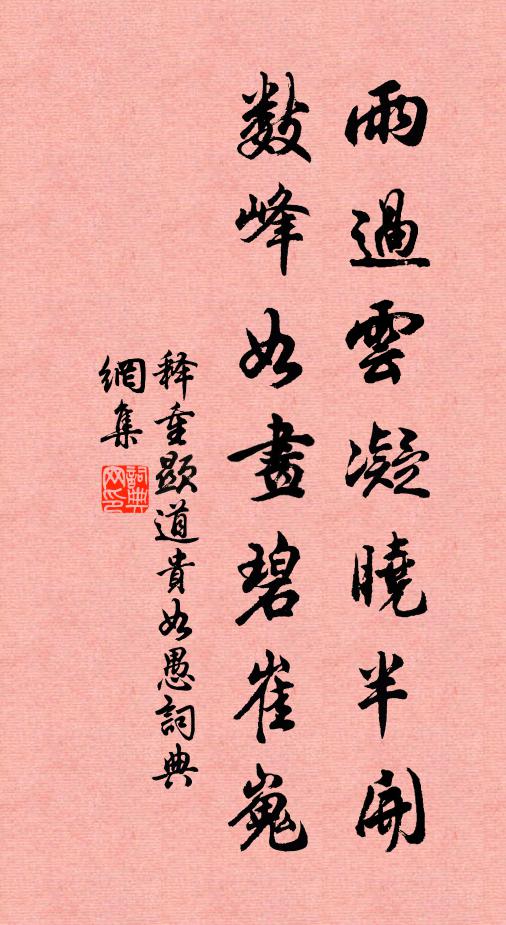 雨過雲凝曉半開
數峰如畫碧崔嵬
释重顯道貴如愚詞典
網集
詞典網印